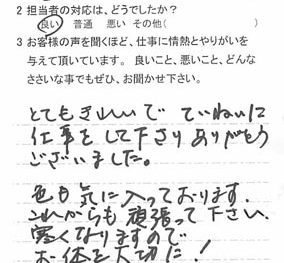 2 担当者の対応は、どうでしたか？
良い 普通 悪い その他( )
3 お客様の声を聞くほど、仕事に情熱とやりがいを
与えて頂いています。 良いこと、悪いこと、どんな
ささいな事でもぜひ、お聞かせ下さい。
とてもきれいで ていねいに
仕事をして下さり ありがとう
ございました。
色も気に入っております。
これからも頑張って下さい。
寒くなりますので
お体を大切に！